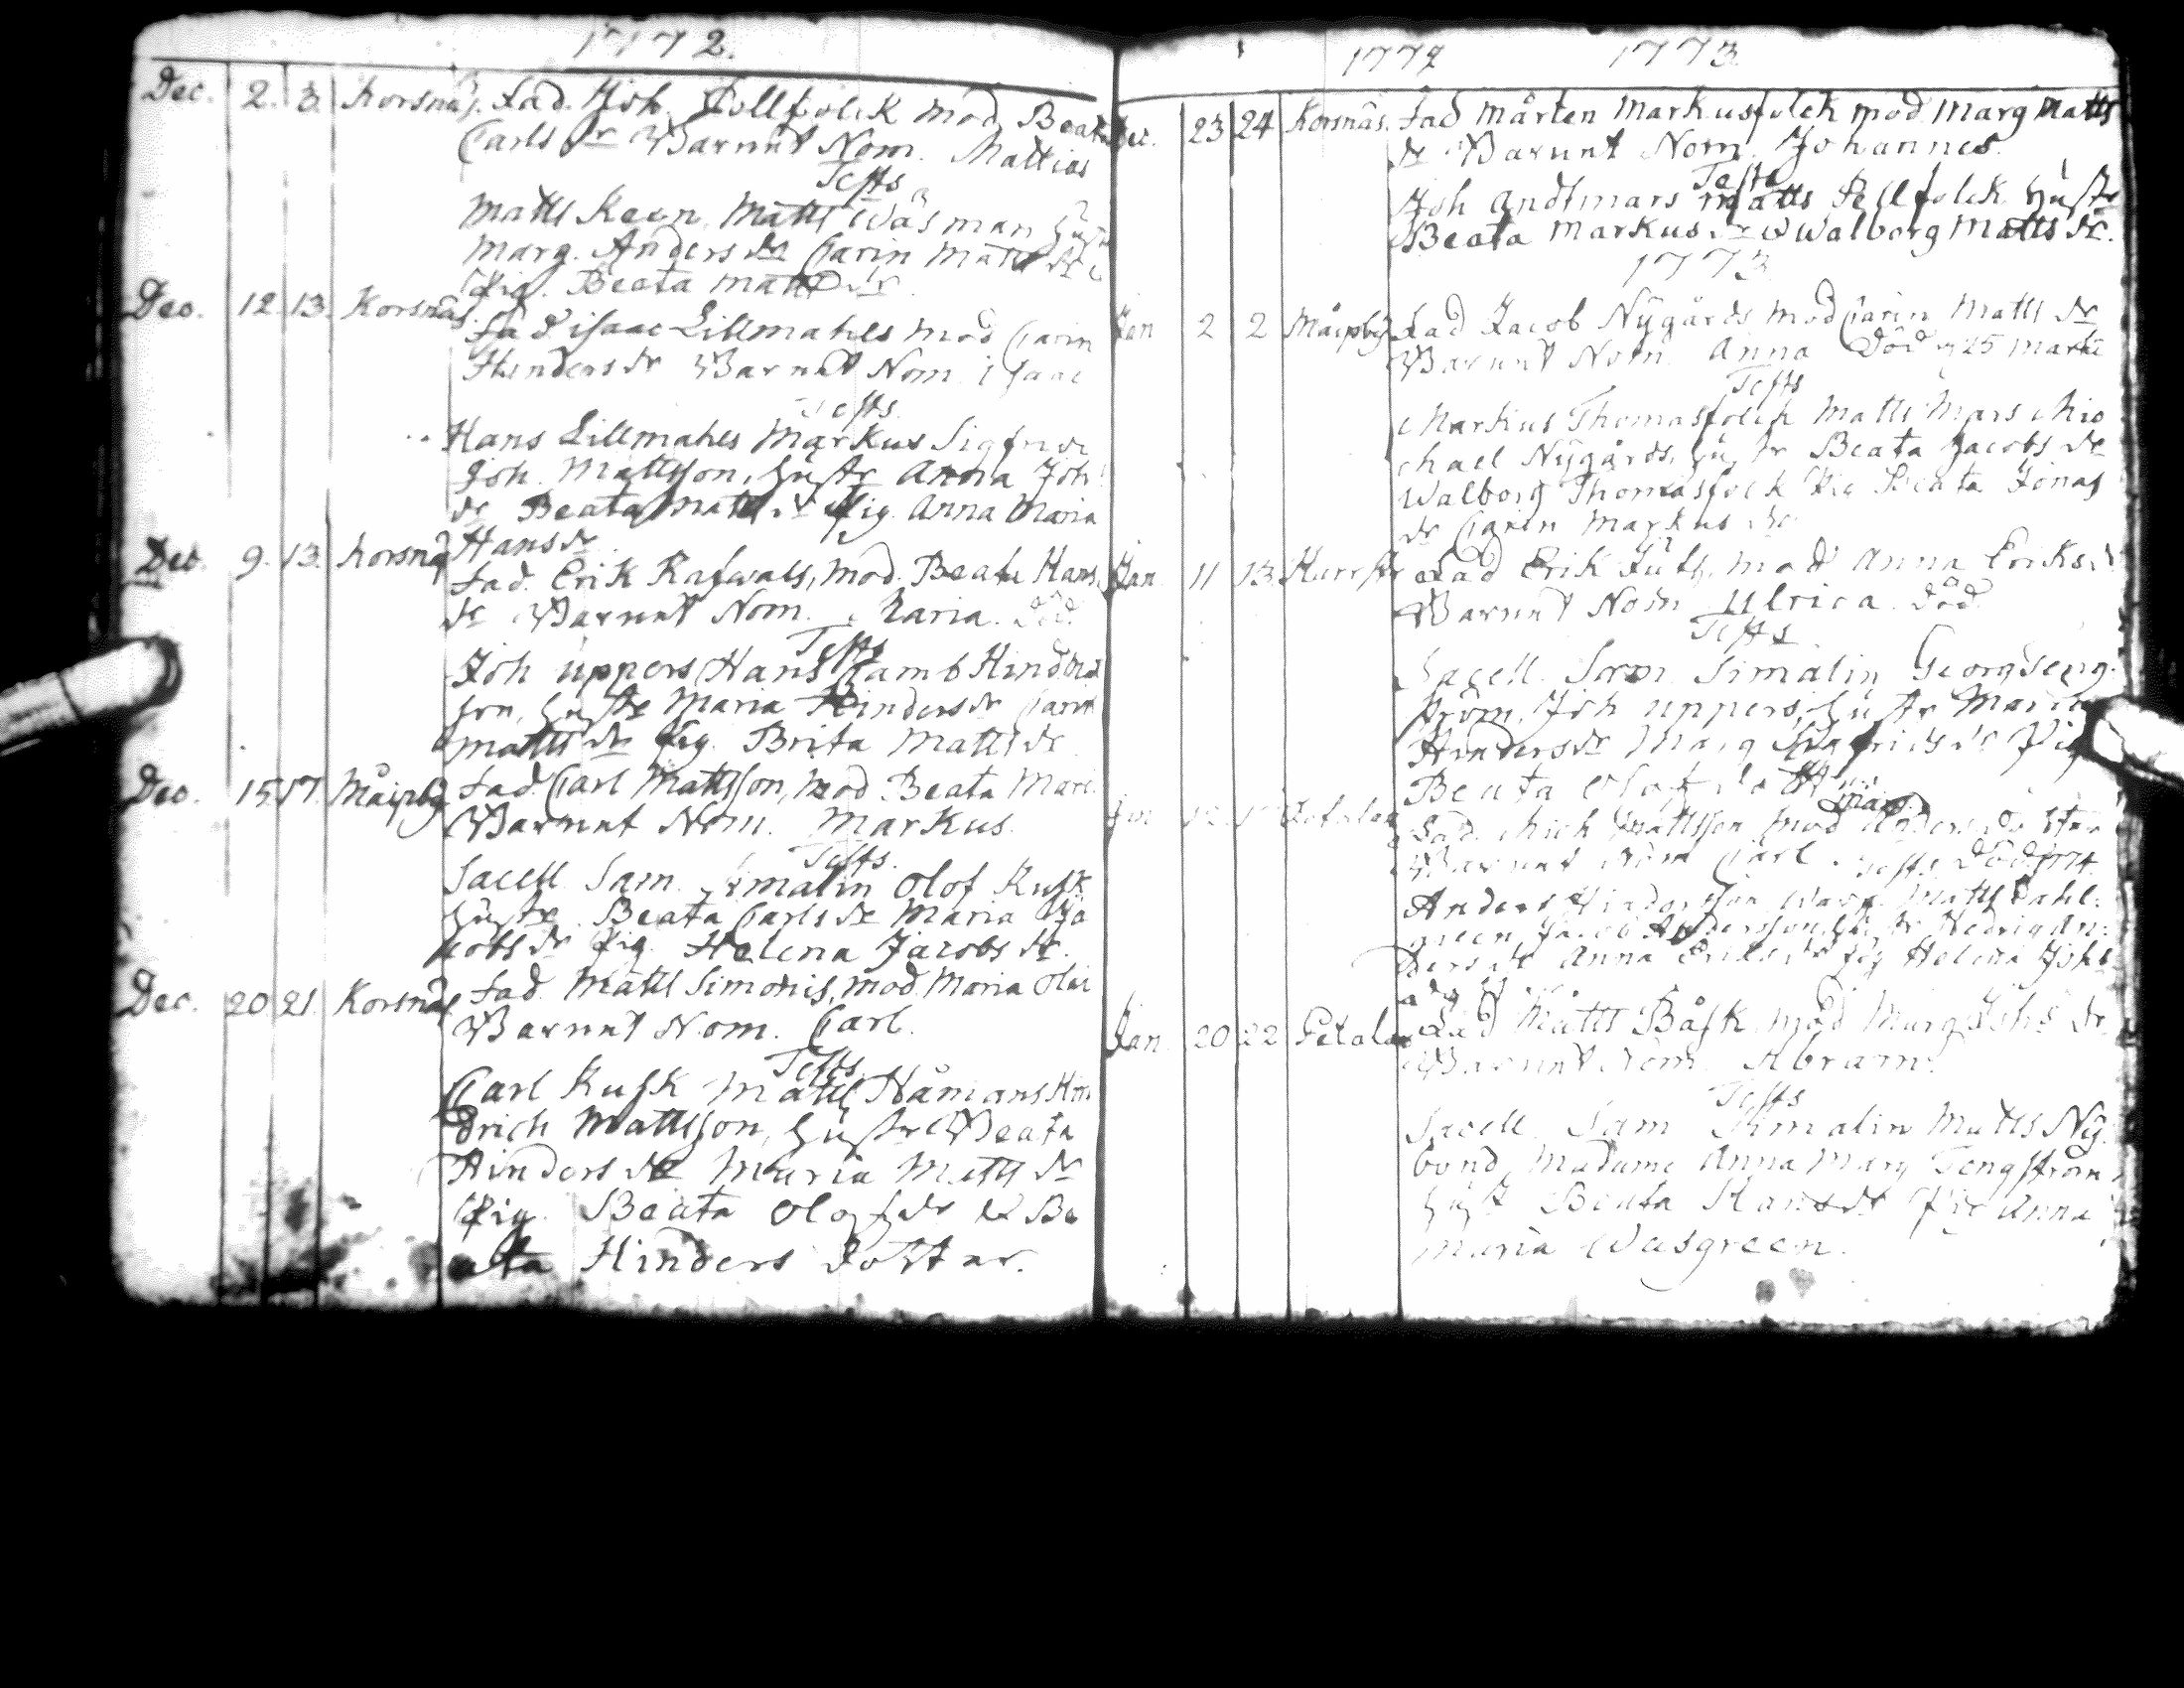 1772.
Dec. 2. 3. Korsnäs. Fad. Joh. Tollfolck mod Beata
Carls dr Barnnt Nom. Mattias
Tests
Matts Keon, Matts Wäsman hustr
Marg. Anders dr Carin Matts dr &
Pig. Beata Matts dr.
Dec. 12. 13. Korsnäs. Fad isaac Lillmahls mod Carin
Hinders dr Barnnt Nom. isaac
Tests.
Hans Lillmahls Markus Sigfrids
Joh. Mattsson, hustr Anna Joh
dr Beata Matts dr Pig. Anna Maria
Hans dr
Dec. 9. 13. Korsnäs Fad. Erik Rafwals, mod. Beata Hans
dr Barnnt Nom. Maria. Död.
Tests
Joh uppers Hans Hindrid
son, hustr Maria Hinders dr Carin
Matts dr Pig. Brita Matts dr
Dec. 15. 17. Måipby Fad. Carl Mattsson, mod Beata Marc
Barnnt Nom. Markus.
Tests.
Sacell Sam. Simalin Olof Rusk
hustr. Beata Carls dr Maria Ja
kobs dr Pig. Helena Jacobs dr.
Dec. 20. 21. Korsnäs Fad. Matts Simonis, mod. Maria Olai
Barnnt Nom. Carl.
Tests
Carl Rusk Matts Nämans Hin
drich Mattsson, hustr Beata
Hinders dr Maria Matts dr
Pig. Beata Olofs dr & Be
ata Hinders dotter.
1772 1773.
Dec. 23 24 Korsnäs. Fad Mårten Markusfolck mod Marg Matts
dr Barnnt Nom. Johannes.
Tests
Joh Andtmars Matts Pellfolck hustr
Beata Markus dr & Walborg Matts dr.
1773
Jan 2 2 Måipby Fad Jacob Nygårds mod Carin Matts dr
Barnnt Nom. Anna Död 25 Martii
Tests
Markus Thomasfolck Matts Mars Mic
chael Nygårds, hustr Beata Jacobs dr
Walborg Thomasfolck Pig Beata Jonas
dr Carin Markus dr
Jan. 11 13 Fad Erik mod Anna Eriks dr
Barnnt Nom Ulrica. Död.
Tests
Sacell. Sam. Simalin Georg Teng
ström, Joh uppers, hustr Maria
Hinders dr Marg Sigfrids dr Pig
Beata Olofs dr
Marg.
Jan 12. Petalax Fad. Mich Mattsson mod Anders dr
Barnnt Nom Carl. Tests Död 1774
Anders Hindersson Matts Dahl-
green, Jacob Andersson, hustr Hedvig An-
ders dr Anna Eriks dr Pig Helena Johs
Jan. 20 22 Petalax Fad Matts Båsk mod Marg Johs dr
Barnnt Nom. Abram.
Tests
Sacell. Sam Simalin Matts Ny
bond, Madame Anna Marg Tengström
hustr Beata Hans dr Pig Anna
Maria Wasgreen.